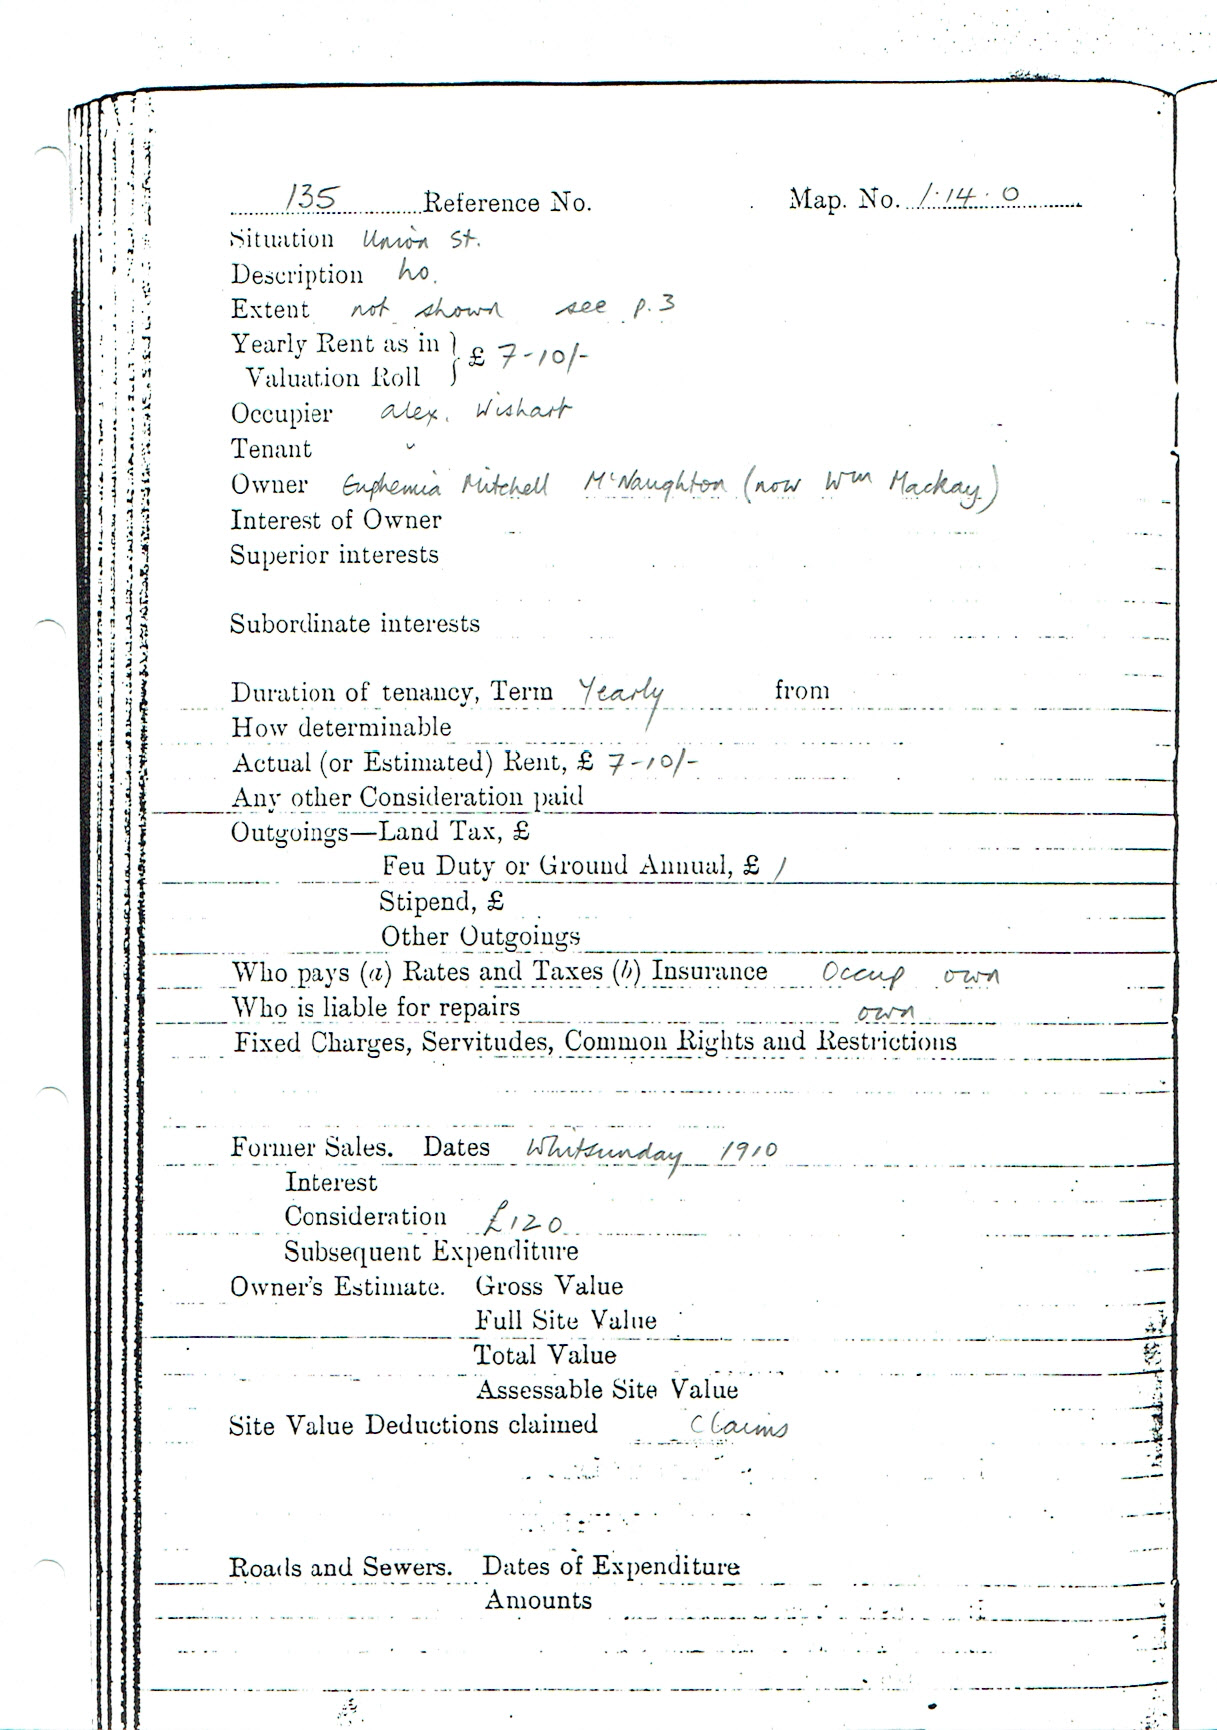 135 Reference No. Map. No. 1.14.0
Situation Union St.
Description ho.
Extent not shown see p.3
Yearly Rent as in
Valuation Roll } £ 7-10/-
Occupier Alex. Wishart
Tenant "
Owner Euphemia Mitchell McNaughton (now Wm Mackay)
Interest of Owner
Superior interests
Subordinate interests
Duration of tenancy, Term Yearly from
How determinable
Actual (or Estimated) Rent, £ 7-10/-
Any other Consideration paid
Outgoings—Land Tax, £
Feu Duty or Ground Annual, £ 1
Stipend, £
Other Outgoings
Who pays (a) Rates and Taxes (b) Insurance Occup own
Who is liable for repairs own
Fixed Charges, Servitudes, Common Rights and Restrictions
Former Sales. Dates Whitsunday 1910
Interest
Consideration £120
Subsequent Expenditure
Owner's Estimate. Gross Value
Full Site Value
Total Value
Assessable Site Value
Site Value Deductions claimed Claims
Roads and Sewers. Dates of Expenditure
Amounts